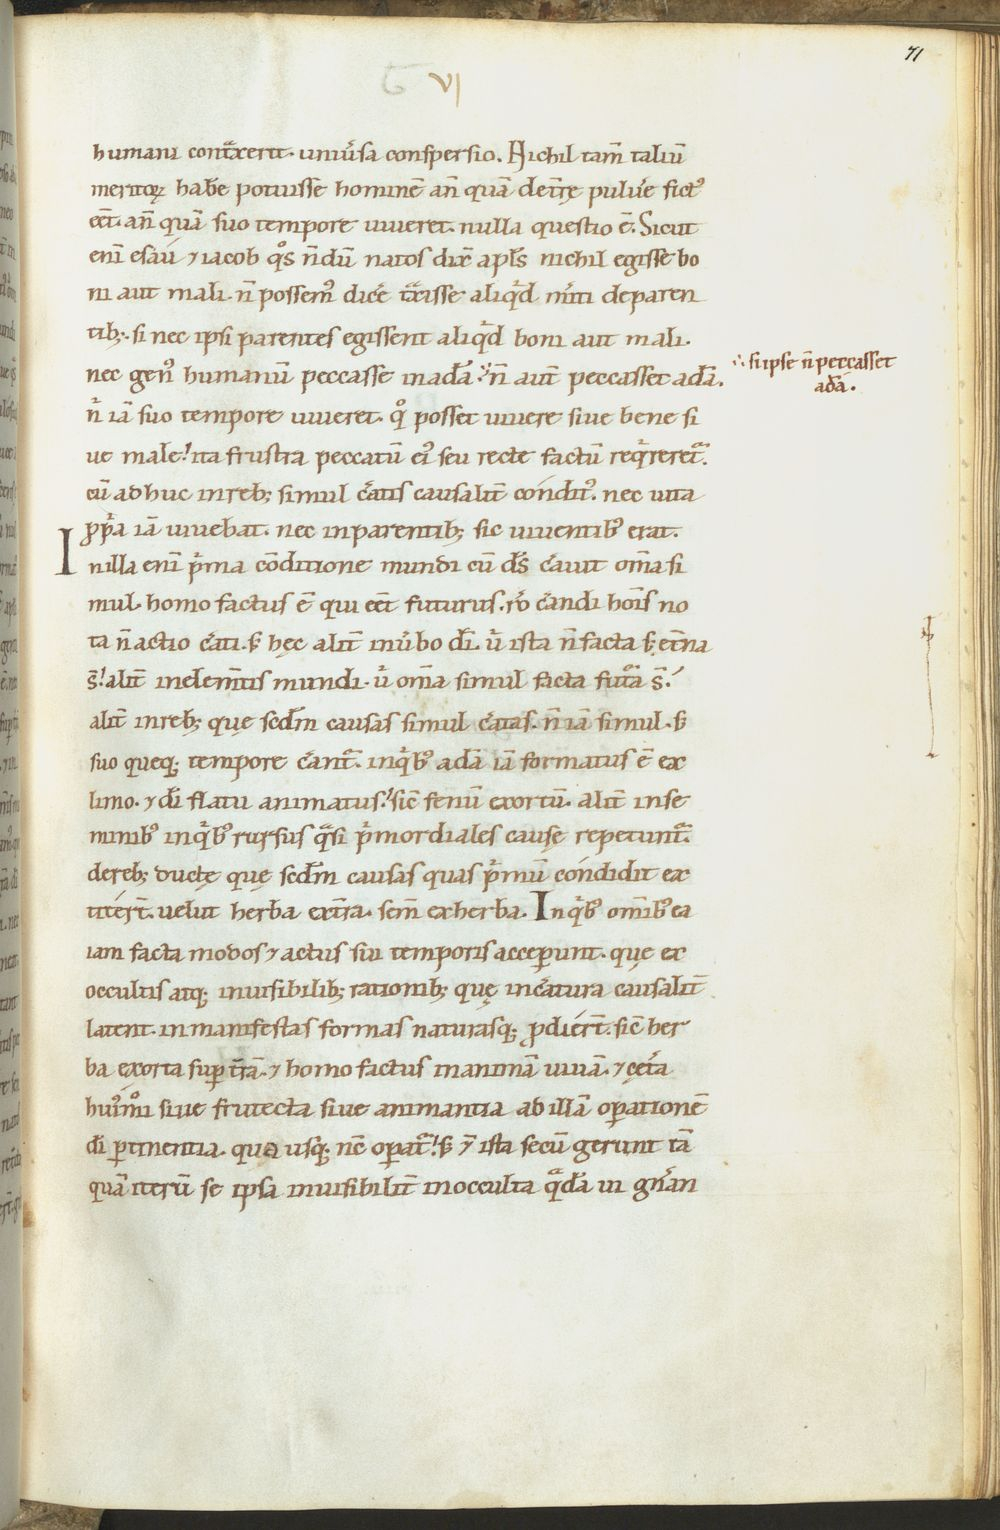 71
VI
humani contͣxerit. uniu͛sa conspersio. Nichil tam̄ taliū
meritoꝝ hab͛e potuisse hominē an̄ quā det͛rę puluͤe fictꝰ
eēt. an̄ quā suo tempore uiueret. nulla questio ē. Sicut
enī esau ⁊ iacob qͦs n̄dū natos dix̄ apl̄s nichil egisse bo
ni aut mali. n̄ possemꝰ dic͛e tͣxisse aliqͥd m͛iti de paren
tib;. si nec ipsi parentes egissent aliqͥd boni aut mali.
nec genꝰ humanū peccasse in adā. n̄ aut̄ peccasset adā.
si ipse n̄ peccasset
adā.
n̄ iā suo tempore uiueret. qͦ posset uiuere siue bene si
ue male. ita frustra peccatū eiꝰ seu recte factū reqͥreretᷓ.
cū adhuc in reb; simul c͛atis causalit̄ conditꝰ. nec uita
ꝓpͥa iā uiuebat. nec in parentib; sic uiuentibꝰ erat.
In illa enī pͥma cōditione mundi cū dꝰ̄s c͛auit om̄a si
mul. homo factus ē qui eēt futurus. rͦ c͛andi hoīs no
ta n̄ actio c͛ati. s; hęc alit̄ in u͛bo dī. u͛ ista n̄ facta s; et͛na
s̄. alit̄ in elem̄tis mundi. u͛ om̄a simul facta futᷓa s̄.
alit̄ in reb; que scd̄m causas simul c͛atas. n̄ iā simul. s;
suo queq; tempore c͛antᷓ. in qͥbꝰ adā iā formatus ē ex
limo. ⁊ dī flatu animatus. sic̄ fenū exortū. alit̄ in se
minibꝰ in qͥbꝰ rursus qͣsi pͥmordiales causę repetuntᷓ.
de reb; ductę quę scd̄m causas quas pͥmū condidit ex
titer̄t. uelut herba ex t͛ra. sem̄ ex herba. In qͥbꝰ om̄ibꝰ ea
iam facta modos ⁊ actus sui temporis acceperunt. quę ex
occultis atq; inuisibilib; rationib; quę in c͛atura causalit̄
latent. in manifestas formas naturasq; ꝓdier̄t. sic̄ her
ba exorta suꝑ t͛rā. ⁊ homo factus in animā uiuā. ⁊ cęt͛a
huiꝰmͦi siue frutecta siue animantia ad illā oꝑationē
dī ꝑtinentia. qua usq; nc̄ oꝑatᷓ. s; ⁊ ista secū gerunt tā
quā iterū se ipsa inuisibilit̄ in occulta qͣdā ui gn͛an